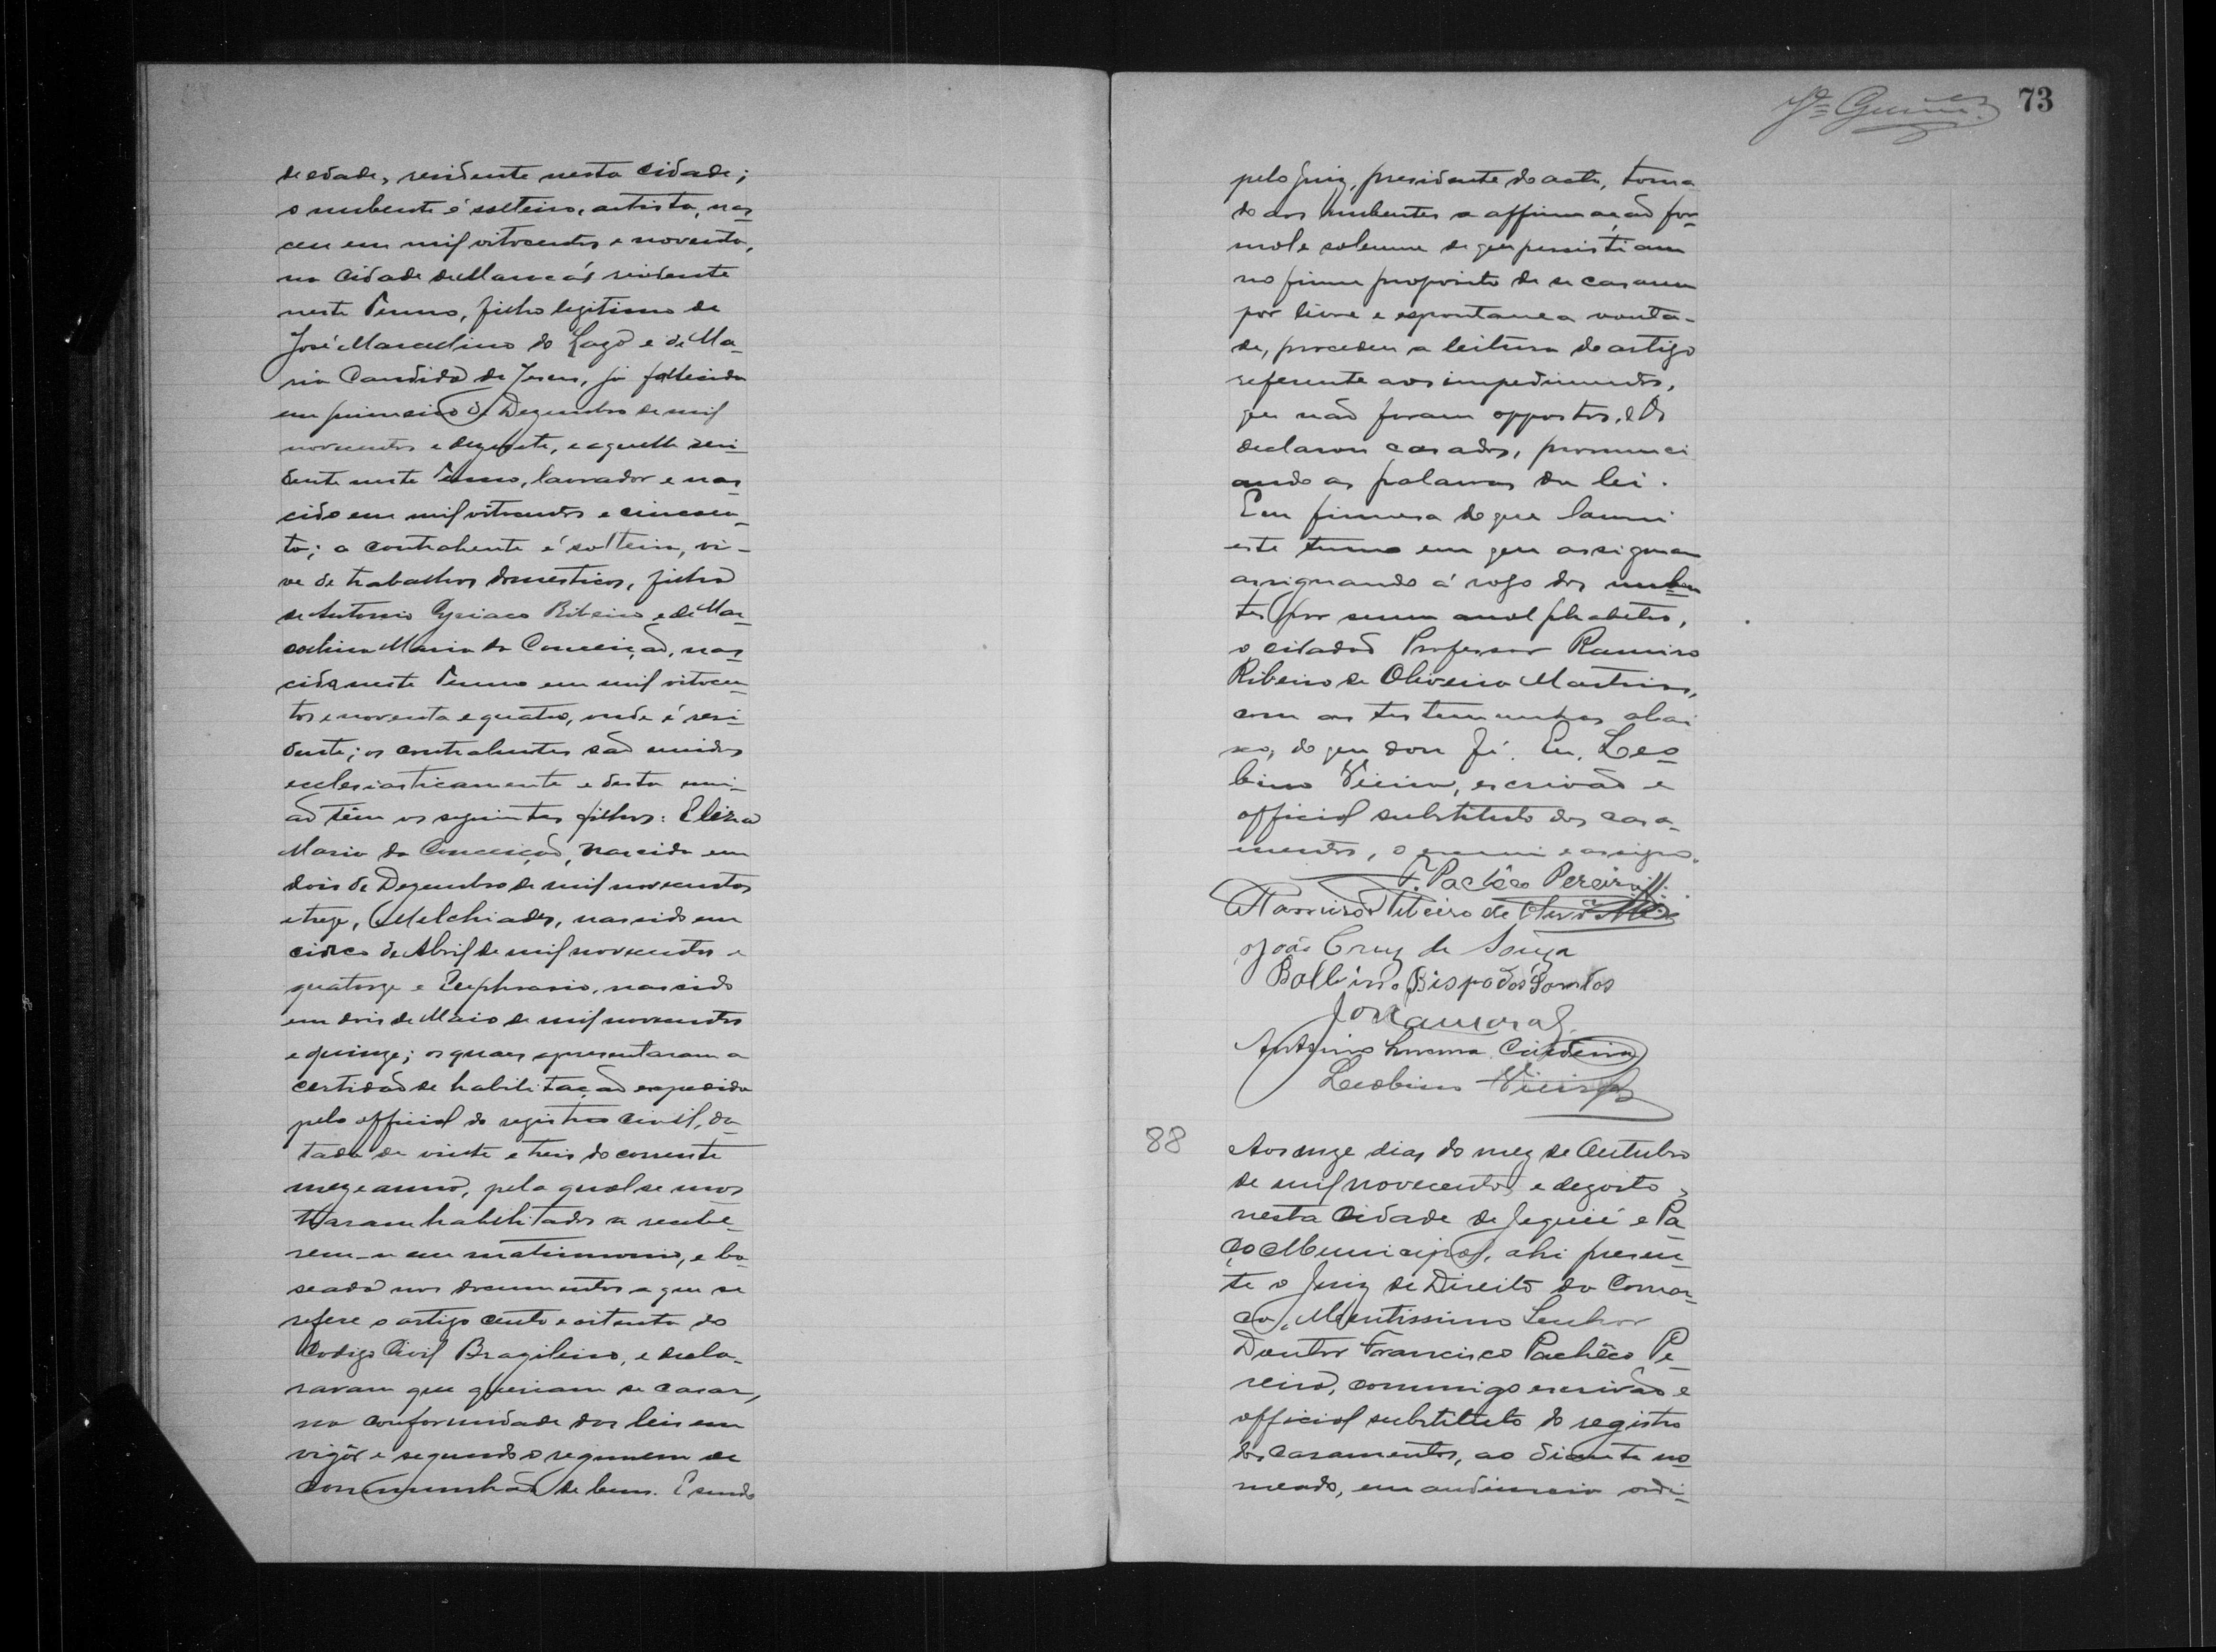 de edade, residente nesta cidade;
o nubente é solteiro, artista, nas-
ceu em mil oitocentos e noventa,
na Cidade de Maracás residente
neste Termo, filho legitimo de
José Marcelino do Lago e de Ma-
ria Candida de Jesus, já fallecida
em primeiro de Dezembro de mil
novecentos e dezesete, e aquelle resi-
dente neste Termo, lavrador e nas-
cido em mil oitocentos e cincoen-
ta; a contrahente é solteira, vi-
ve de trabalhos domesticos, filha
de Antonio Cyriaco Ribeiro e de Mar-
colina Maria da Conceição, nas-
cida neste Termo em mil oitocen-
tos e noventa e quatro, onde é resi-
dente; os contrahentes são unidos
ecclesiasticamente e desta uni-
ão têm os seguintes filhos: Eliza
Maria da Conceição, nascida em
dois de Dezembro de mil novecentos
e treze, Melchiades, nascido em
cinco de Abril de mil novecentos e
quatorze e Euphrasio, nascido
em dois de Maio de mil novecentos
e quinze; os quaes apresentaram a
certidão de habilitação expedida
pelo official do registro civil, da-
tada de vinte e treis do corrente
mez e anno, pela qual se mos
traram habilitados a recebe-
rem-se em matrimonio, e ba-
seada nos documentos a que se
refere o artigo cento e oitenta do
Codigo Civil Brazileiro, e decla-
ravam que queriam se casar,
na conformidade das leis em
vigôr e segundo o regimem de
communhão de bens. E sendo
73
pelo Juiz, presidente do acto, toma
do aos nubentes a affirmação for-
mal e solemne de que persistiam
no firme proposito de se casarem
por livre e espontanea vonta-
de, procedeu a leitura do artigo
referente aos impedimentos,
que não foram oppostos, e os
declarou casados, pronunci
ando as palavras da lei.
Em firmesa do que lavrei
este termo em que assignam
assignando á rogo dos nuben
tes por serem analphabetos,
o cidadão Professor Ramiro
Ribeiro de Oliveira Martins,
com as testemunhas abai
xo, do que dou fé. Eu, Leo-
bino Vieira, escrivão e
official substituto dos casa-
mentos, o escrevi e assigno.
F. Pachêco Pereira
Ramiro Ribeiro de Olivrª
João Cruz de Souza
Balbino Bispo dos Santos
Antonio Cardeiro
Leobino Vieira
88
Aos onze dias do mez de Outubro
de mil novecentos e dezoito,
nesta Cidade de Jequié e Pa
ço Municipal, ahi presen-
te o Juiz de Direito da Comar-
ca, Meritissimo Senhor
Doutor Francisco Pachêco Pe-
reira, commigo escrivão e
official substituto do registro
dos casamentos, ao diante no-
meado, em audiencia ordi-